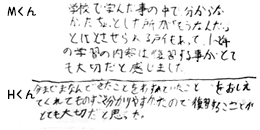 Mくん
学校で学んだ事の中で分からなかったな。とした所が「そうなんだ」とはとさせられる所もあって、1〜4の学習の内容は復習する事がとても大切だと感じました。
Hくん
今まで学んできたことをわすれていたこと をおしえてくれてものすごく分かりやすかたので復習することがとても大切だと思った。